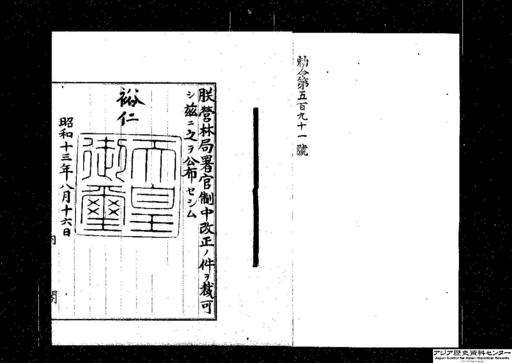 勅令第五百九十一號
朕營林局署官制中改正ノ件ヲ裁可
シ茲ニ之ヲ公布セシム
裕仁
天皇
御璽
昭和十三年八月十六日
内閣
アジア歴史資料センター
Japan Center for Asian Historical Records